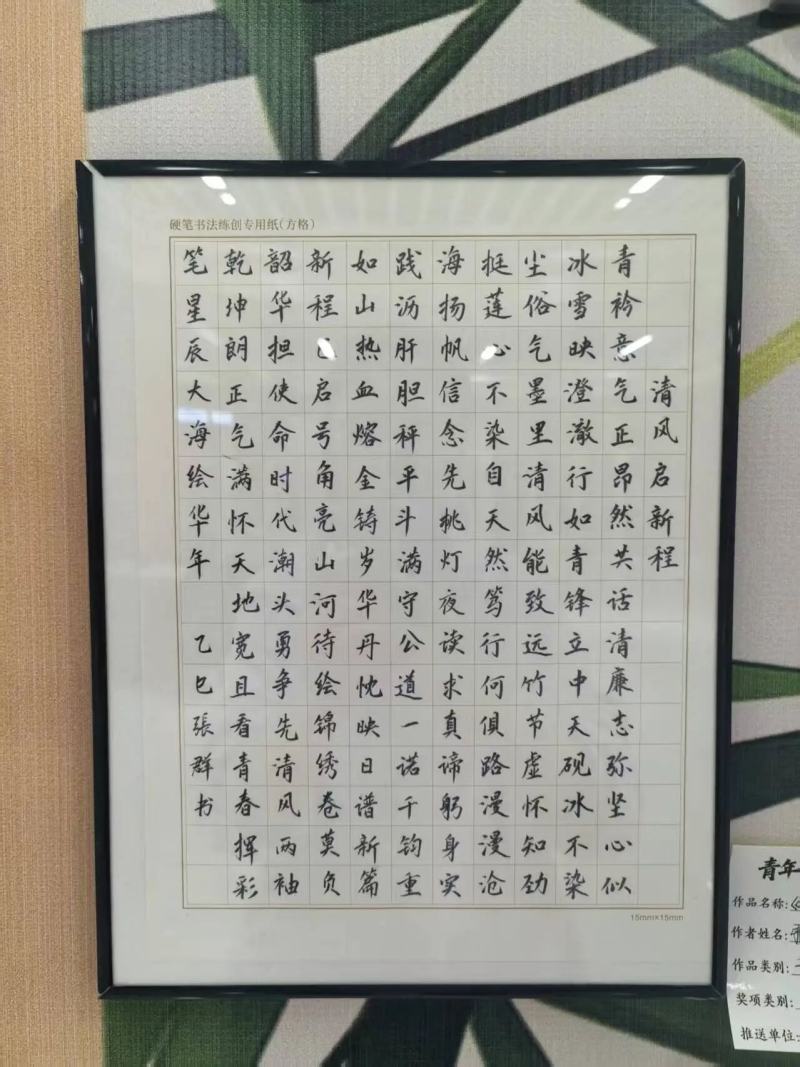 硬笔书法练创专用纸(方格)
清风启新程
青衿意气正昂然共话清廉志弥坚心似
冰雪映澄澈行如青锋立中天砚冰不染
尘俗气墨里清风能致远竹节虚怀知劲
挺莲心不染自天然笃行何惧路漫漫沧
海扬帆信念先挑灯夜读求真谛躬身实
践沥肝胆秤平斗满守公道一诺千钧重
如山热血熔金铸岁华丹忱映日谱新篇
新程已启号角亮山河待绘锦绣卷莫负
韶华担使命时代潮头勇争先清风两袖
乾坤朗正气满怀天地宽且看青春挥彩
笔星辰大海绘华年 乙巳張群书
15mm×15mm
青年
作品名称:
作者姓名:
作品类别:
奖项类别:
推送单位: